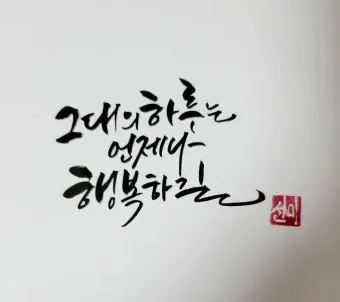 그대의 하루는
언제나
행복하길
선미